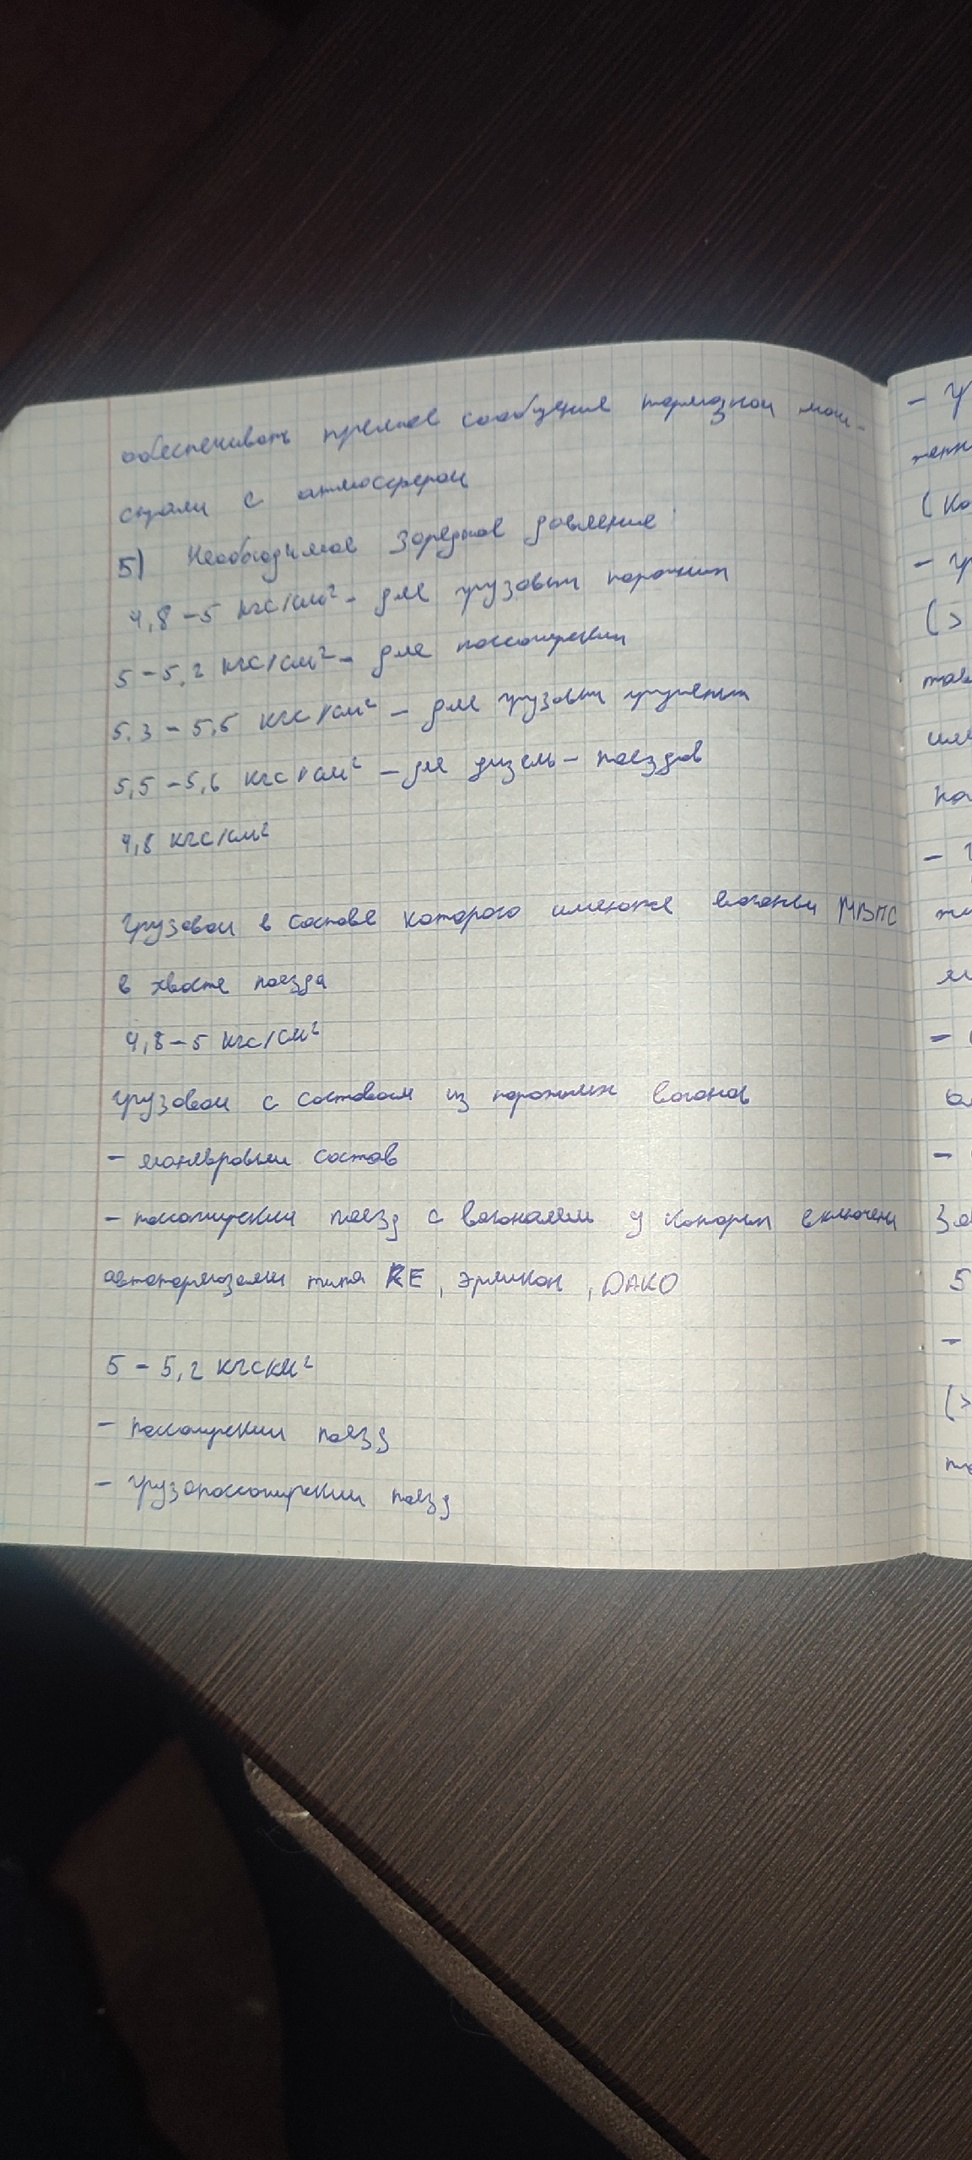 обеспечивать прямое сообщение тормозной маги-
страли с атмосферой
5) Необходимое зарядное давление:
4,8 – 5 кгс/см² – для грузовых порожних
5 – 5,2 кгс/см² – для пассажирских
5.3 – 5,5 кгс/см² – для грузовых груженых
5,5 – 5,6 кгс/см² – для дизель – поездов
4,8 кгс/см²
грузовой в составе которого имеются вагоны МВПС
в хвосте поезда
4,8 – 5 кгс/см²
грузовой с составом из порожних вагонов
– маневровый состав
– пассажирский поезд с вагонами у которых включены
автотормозами типа KE, эрликон, DAKO
5 – 5,2 кгскм²
– пассажирский поезд
– грузопассажирский поезд